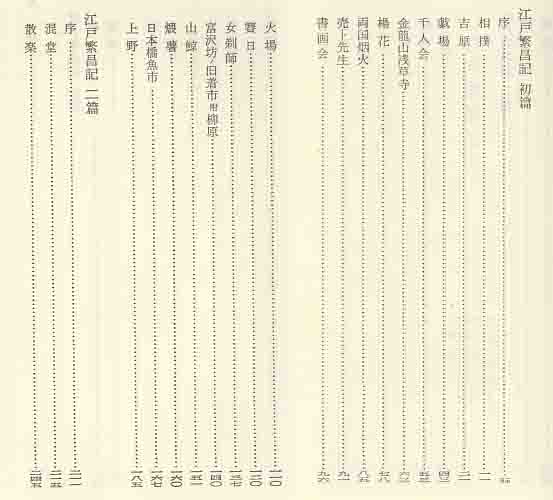 江戸繁昌記 初篇
序
相撲
吉原
戯場
千人会
金龍山浅草寺
楊花 七八
両国烟火 八五
売卜先生 九一
書画会 九六
火場 一一〇
賽日 一二〇
女剃師 一三七
富沢坊ノ旧着市附柳原 一四〇
山鯨 一五一
煨薯 一六〇
日本橋魚市 一六七
上野 一八五
江戸繁昌記 二篇
序 二一一
混堂 二一五
散楽 二四五